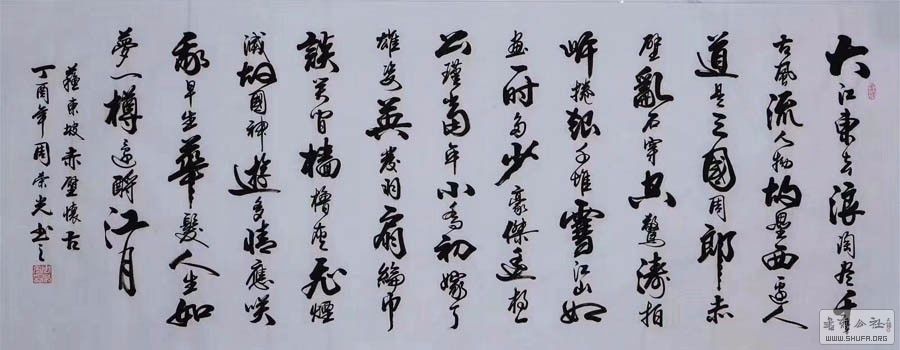 大江東去浪淘尽千
古風流人物故壘西邊人
道是三國周郎之赤
壁亂石穿空驚濤拍
岸捲起千堆雪江山如
画一时多少豪傑遙想
公瑾當年小喬初嫁了
雄姿英發羽扇綸巾
談笑间檣櫓灰飛煙
滅故國神遊多情應笑
我早生華髮人生如
夢一樽還酹江月
蘇東坡赤壁懷古
丁酉年周榮光书之
书法公社
WWW.SHUFA.ORG